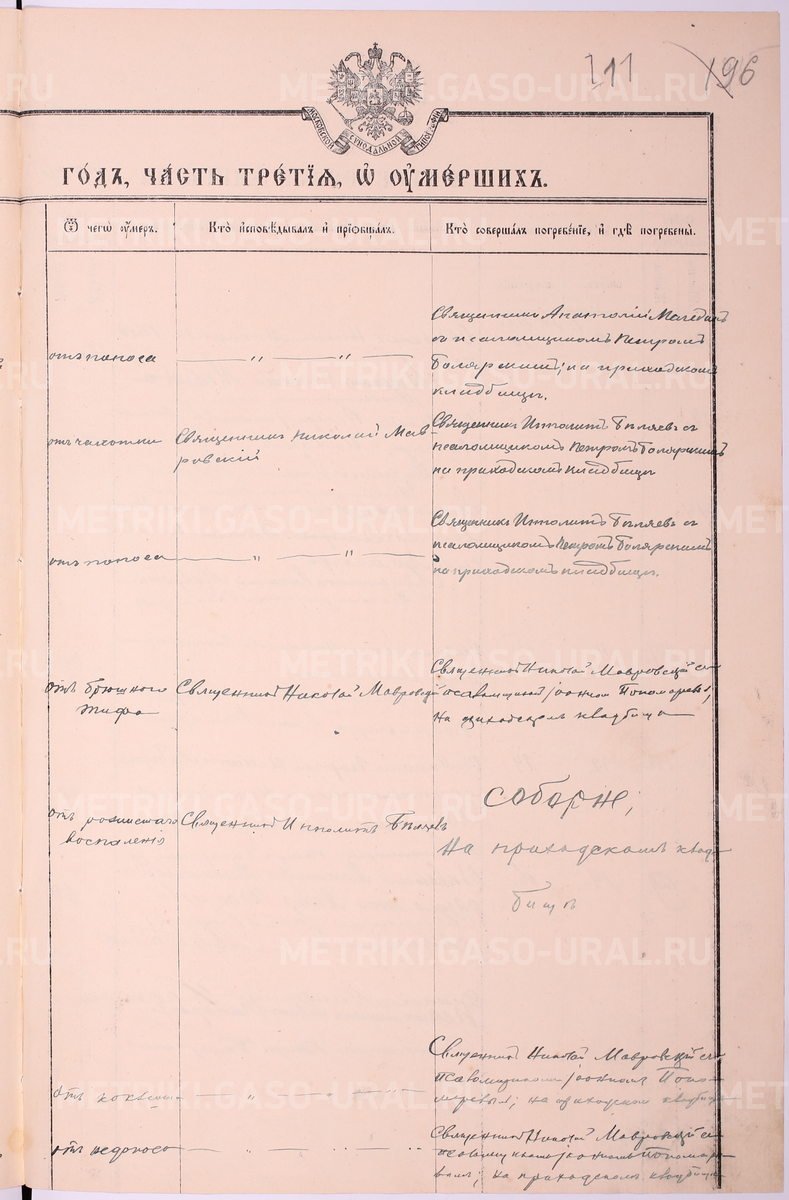 111
196
МОСКОВСКОЙ СѴНОДАЛЬНОЙ ТИПОГРАФІИ
ГОДЪ, ЧАСТЬ ТРЕТІѦ, Ѡ ОУМЕРШИХЪ.
Ѿ чегѡ оумеръ.
Кто исповѣдывалъ и пріобщалъ.
Кто совершалъ погребеніе, и гдѣ погребены.
отъ поноса
Священникъ Анатолій
съ псаломщикомъ Петромъ
Боляренимъ; на приходскомъ
кладбищѣ.
отъ чахотки
Священникъ Николай Мав
ровскій
Священникъ Ипполитъ Бѣляевъ съ
псаломщикомъ Петромъ
на приходскомъ кладбищѣ
отъ поноса
Священникъ Ипполитъ Бѣляевъ съ
псаломщикомъ Петромъ
на приходскомъ кладбищѣ.
отъ брюшного
тифа
Священникъ Николай Мавровскій
Священникъ Николай Мавровскій съ
псаломщикомъ Пономаревымъ;
на приходскомъ кладбищѣ
отъ
воспаленія
Священникъ Ипполитъ Бѣляевъ
соборне;
на приходскомъ клад
бищѣ
отъ коклюша
Священникъ Николай Мавровскій съ
псаломщикомъ Поно
маревымъ; на приходскомъ кладбищѣ
отъ
Священникъ Николай Мавровскій съ
псаломщикомъ Пономаре
вымъ; на приходскомъ кладбищѣ
METRIKI.GASO-URAL.RU